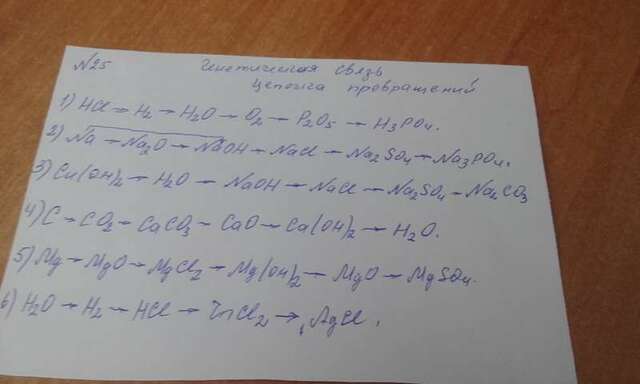 N25 Генетическая связь
Цепочка превращений
1) HCl → H2 → H2O → O2 → P2O5 → H3PO4.
2) Na → Na2O → NaOH → NaCl → Na2SO4 → Na3PO4.
3) Cu(OH)2 → H2O → NaOH → NaCl → Na2SO4 → Na2CO3
4) C → CO2 → CaCO3 → CaO → Ca(OH)2 → H2O.
5) Mg → MgO → MgCl2 → Mg(OH)2 → MgO → MgSO4.
6) H2O → H2 → HCl → ZnCl2 → AgCl.